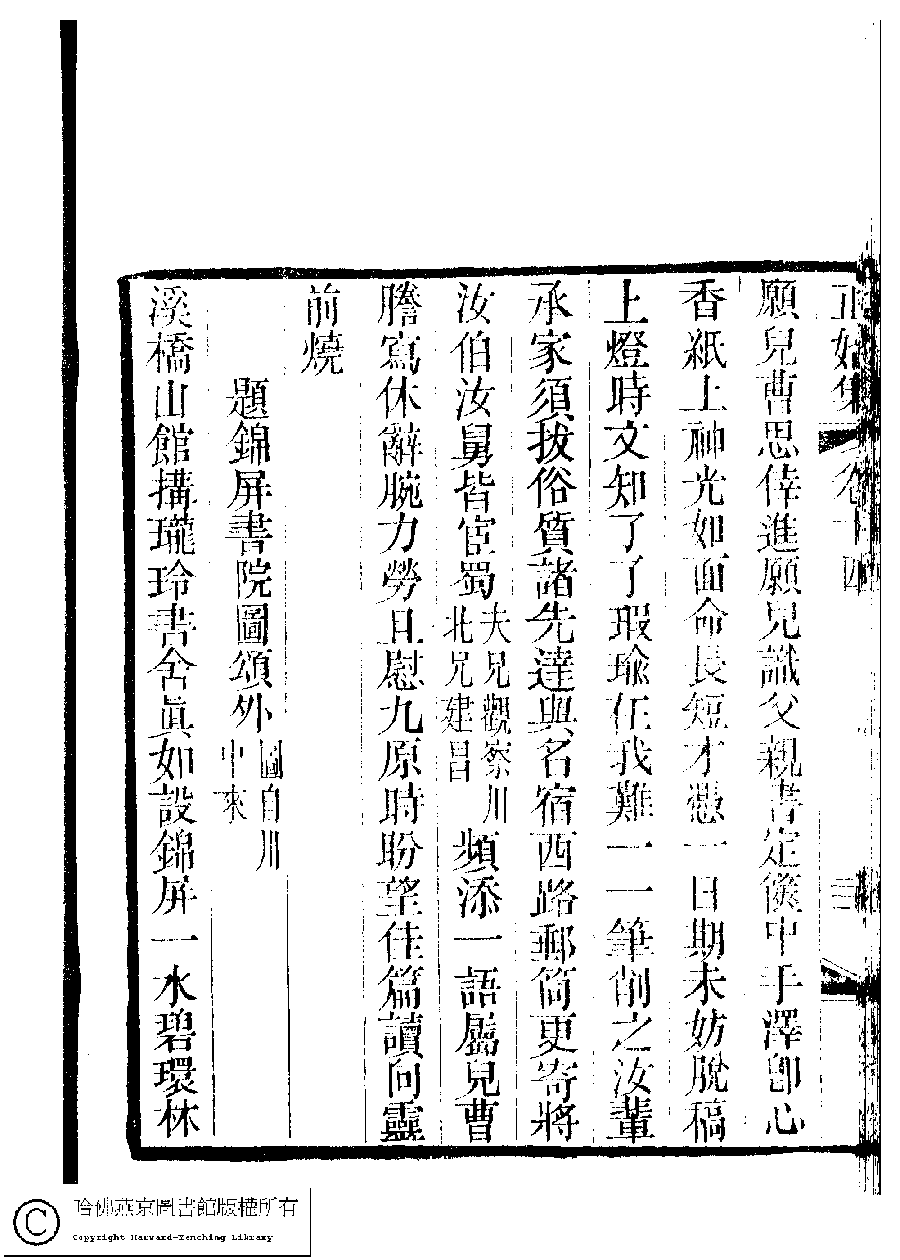 正始集 卷十四 三
願兒曹思倖進願兒識父親書定篋中手澤即心
香紙上神光如面命長短才憑一日期未妨脫稿
上燈時文知了了瑕瑜在我難一一筆削之汝輩
承家須拔俗質諸先達與名宿西路郵筒更寄將
汝伯汝舅皆宦蜀夫兄觀察川北兄建昌頻添一語屬兒曹
謄寫休辭腕力勞且慰九原時盼望佳篇讀向靈
前燒
題錦屏書院圖頌外圖自川中來
溪橋山館搆瓏玲書舍真如設錦屏一水碧環林
哈佛燕京圖書館版權所有
Copyright Harvard-Yenching Library